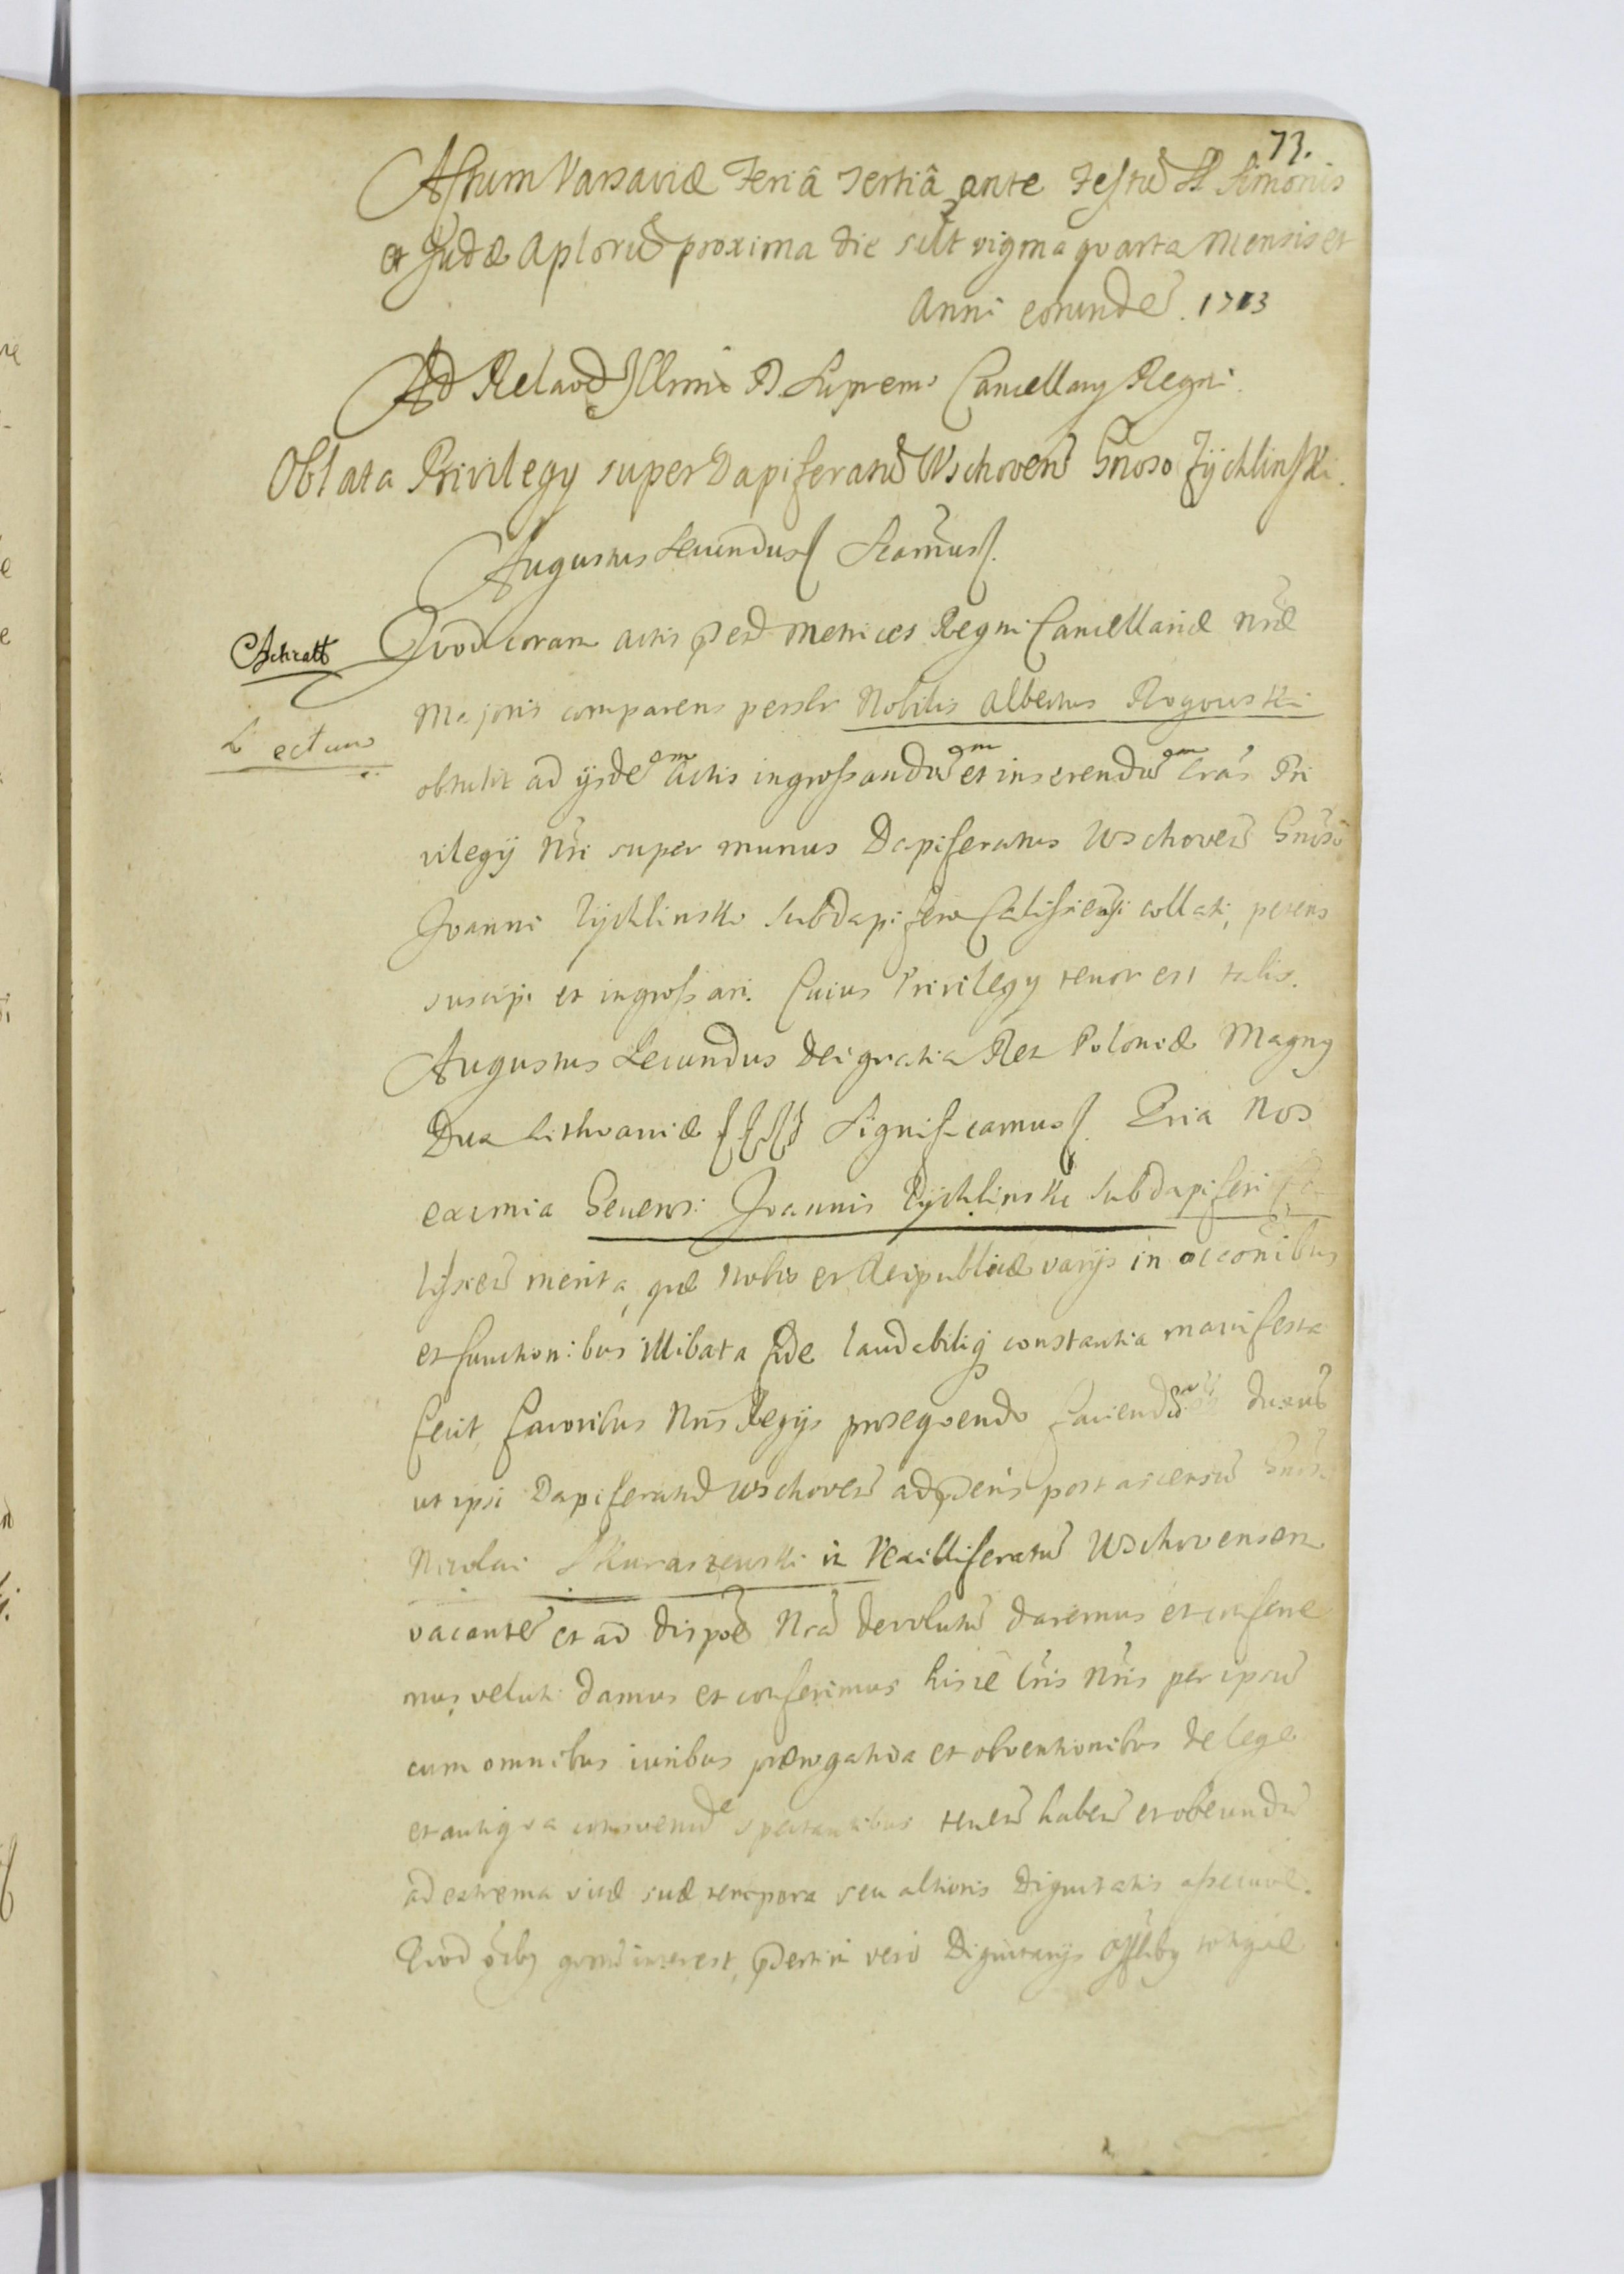 73.
Actum Varsaviæ Feriâ Tertiâ ante Festũ SS. Simonis
et Judæ Aplorũ proxima die scilt vigma qvarta Mensis et
Anni eorundẽ. 1713
Ad Relaõe Illrmi D. Supremi Cancellarij Regni.
Oblata Privilegy super Dapiferatũ Wschoveñ Gnoso Zÿchlinski.
Augustus Secundus Scamus
Schratt
Qvod coram actis pñtib Metrices Regni Cancellariæ nræ
Majoris comparens persolr Nobilis Albertus Rogowski
Lectum
obtulit ad ijsdẽ Actis ingrossandũ et inserendũ Lras Pri
vilegij Nri super munus Dapiferatus Wschoveñ Gnoso
Joanni Zÿchlinski Subdapifero Calissiensi collati, petens
suscipi et ingrossari. Cuius Privilegy tenor est talis.
Augustus Secundus Dei gratia Rex Poloniæ Magny
Dux Lithvaniæ Significamus Qvia Nos
eximia Generosi Joannis Zÿchlinski Subdapiferi Ca
lissieñ merita, qvæ Nobis et Reipublicæ varijs in occõnibus
et functionibus illibata fide laudabiliq constantia manifesta
fecit, favoribus Nris Regijs proseqvendo faciendũ duxim
ut ipsi Dapiferatũ Wschoveñ ad pñs post ascensũ Gnosi
Nicolai Skuraszewski in Vexilliferatũ Wschovensem
vacantẽ et ad dispõe Nrã devolutũ daremus et conferre
mus, veluti damus et conferimus hisce Lris Nris per ipsũ
cum omnibus iuribus prærogativa et obventionibus de lege
et antiqva consvetude spectantibus teneñ habeñ et obeundũ
ad extrema vitæ suæ tempora seu altioris Dignitatis assecuõe.
Qvod õibq qvorũ interest, vero Dignitarijs Offlibq